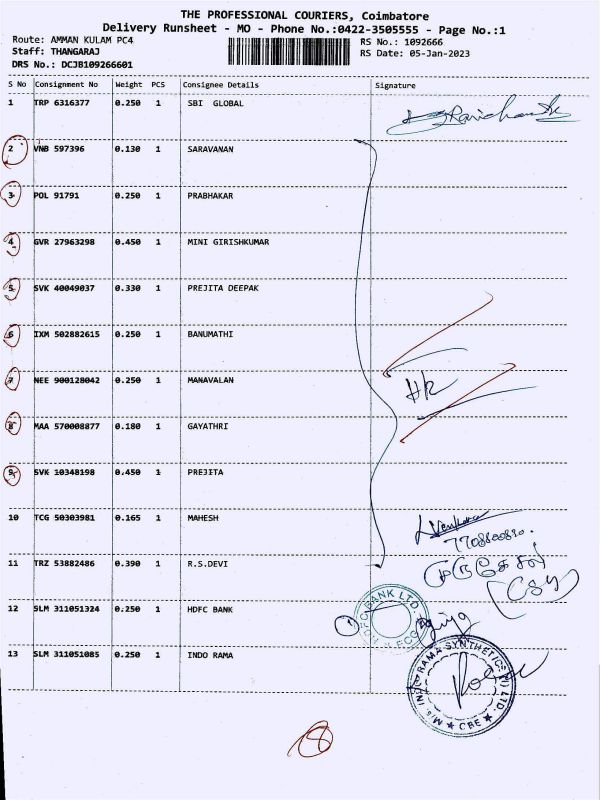 THE PROFESSIONAL COURIERS, Coimbatore
Delivery Runsheet - MO - Phone No.:0422-3505555 - Page No.:1
Route: AMMAN KULAM PC4
RS No.: 1092666
Staff: THANGARAJ
RS Date: 05-Jan-2023
DRS No.: DCJB109266601
S No Consignment No Weight PCS Consignee Details Signature
1 TRP 6316377 0.250 1 SBI GLOBAL
2 VNB 597396 0.130 1 SARAVANAN
3 POL 91791 0.250 1 PRABHAKAR
4 GVR 27963298 0.450 1 MINI GIRISHKUMAR
5 SVK 40049037 0.330 1 PREJITA DEEPAK
6 IXM 502882615 0.250 1 BANUMATHI
7 NEE 900128042 0.250 1 MANAVALAN
HR
8 MAA 570008877 0.180 1 GAYATHRI
9 SVK 10348198 0.450 1 PREJITA
10 TCG 50303981 0.165 1 MAHESH
11 TRZ 53882486 0.390 1 R.S.DEVI
12 SLM 311051324 0.250 1 HDFC BANK
13 SLM 311051085 0.250 1 INDO RAMA
M/s. INDO RAMA SYNTHETICS (I) LTD. ★ CBE ★